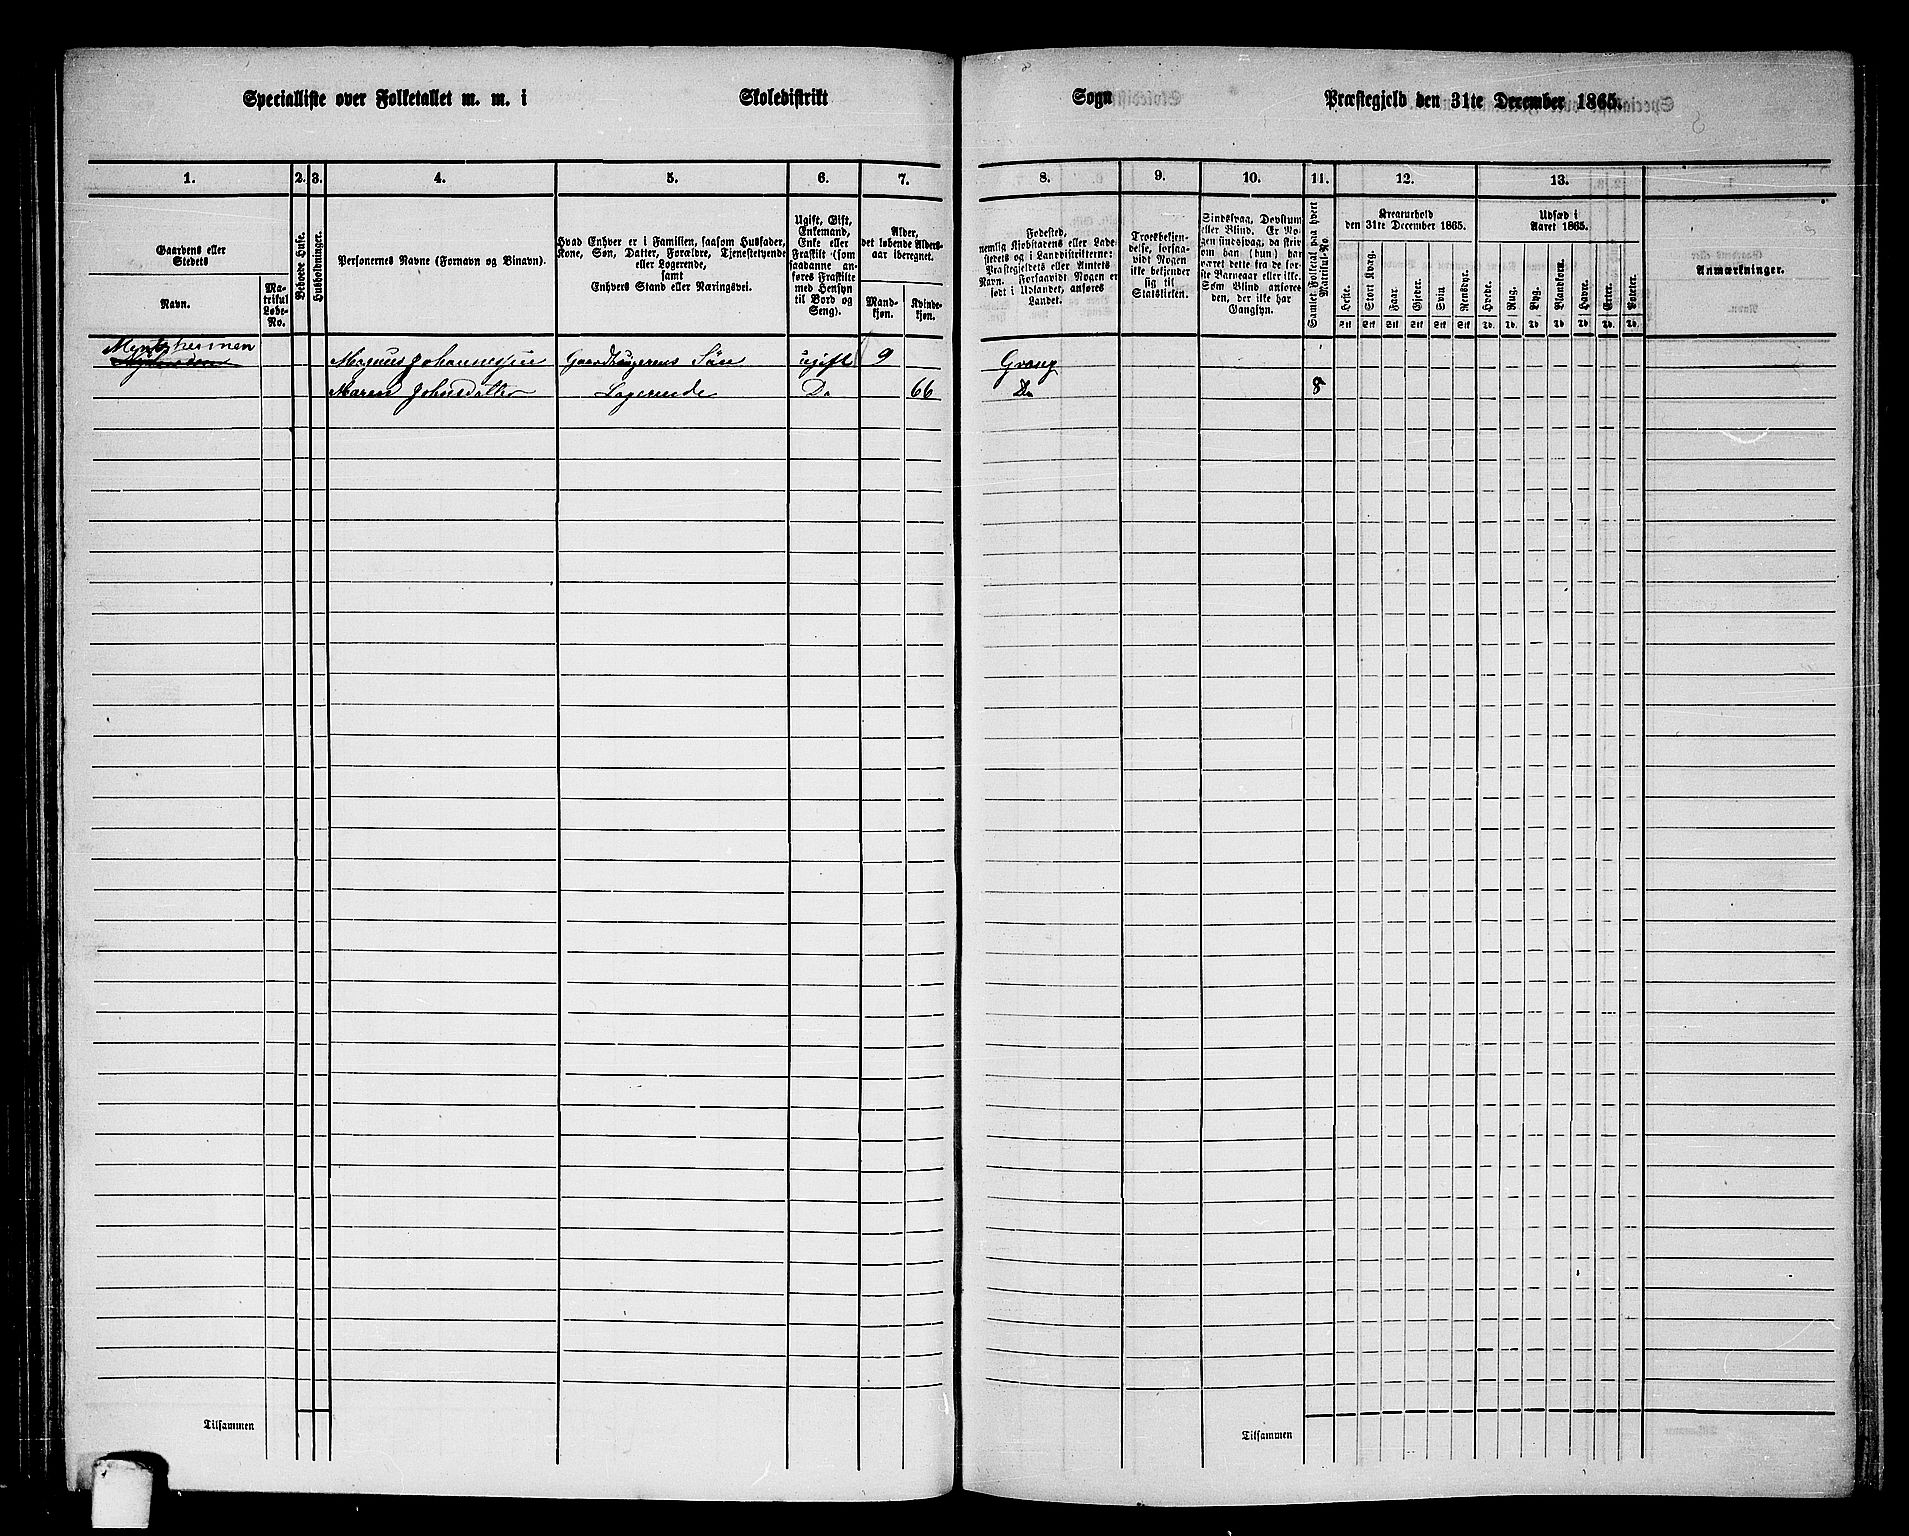 Specialliste over Folketallet m. m. i Skoledistrikt Sogn Præstegjeld den 31te December 1865.
1. 2. 3. 4. 5. 6. 7. 8. 9. 10. 11. 12. 13.
Gaardens eller Stedets
Navn.
Matrikul Løbe-No.
Beboede Huse.
Husholdninger.
Personernes Navne (Fornavn og Binavn).
Hvad Enhver er i Familien, saasom Husfader,
Kone, Søn, Datter, Forældre, Tjenestetyende
eller Logerende,
samt
Enhvers Stand eller Næringsvei.
Ugift, Gift,
Enkemand,
Enke eller
Fraskilt (som
saadanne an-
føres Fraskilte
med Hensyn
til Bord og
Seng).
Alder,
det løbende Alders-
aar iberegnet.
Mand-
kjøn.
Kvinde-
kjøn.
Fødested,
nemlig Kjøbstadens eller Lade-
stedets og i Landdistrikterne:
Præstegjeldets eller Amtets
Navn. Forsaavidt Nogen er
født i Udlandet, anføres
Landet.
Troesbekjen-
delse, forsaa-
vidt Nogen
ikke bekjender
sig til
Statskirken.
Sindssvag, Døvstum
eller Blind. Er No-
gen sindssvag, da skriv
om han (hun) har
været dette fra de før-
ste Barneaar eller ikke.
Som Blind anføres
den, der ikke har
Gangsyn.
Samlet Folketal paa hvert
Matrikul-No.
Kreaturhold
den 31te December 1865.
Heste.
Stort Kvæg.
Faar.
Gjeder.
Svin
Rensdyr.
Stk Stk Stk Stk Stk Stk
Udsæd i
Aaret 1865.
Hvede.
Rug.
Byg.
Blandkorn.
Havre.
Erter.
Poteter.
Td. Td. Td. Td. Td. Td. Td.
Anmærkninger.
Magnus Johannessen Gaardbrugerens Søn ugift 9 Grong
Maren Johnsdatter Logerende Do 66 Do 8
Tilsammen
Tilsammen